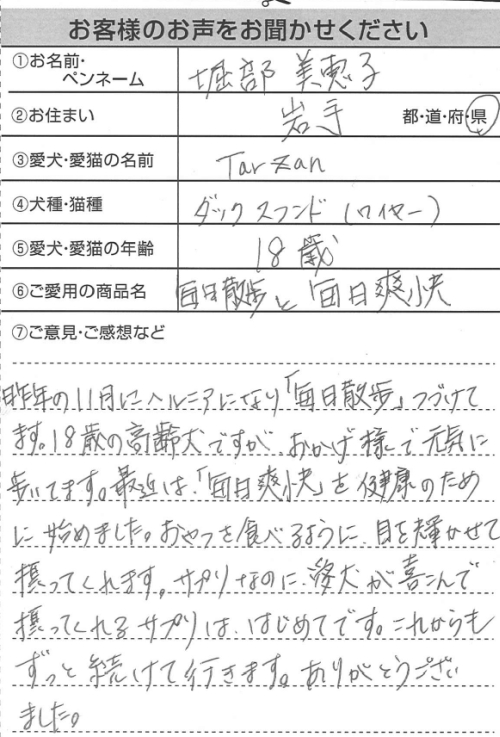 お客様のお声をお聞かせください
①お名前・ペンネーム 堀部 美恵子
②お住まい 岩手 都・道・府・県
③愛犬・愛猫の名前 Tarzan
④犬種・猫種 ダックスフンド(ワイヤー)
⑤愛犬・愛猫の年齢 18歳
⑥ご愛用の商品名 毎日散歩と毎日爽快
⑦ご意見・ご感想など
昨年の11月にヘルニアになり「毎日散歩」つづけて
ます。18歳の高齢犬ですが、おかげ様で元気に
歩いてます。最近は、「毎日爽快」を健康のため
に始めました。おやつを食べるように、目を輝かせて
摂ってくれます。サプリなのに、愛犬が喜こんで
摂ってくれるサプリは、はじめてです。これからも
ずっと続けて行きます。ありがとうござい
ました。